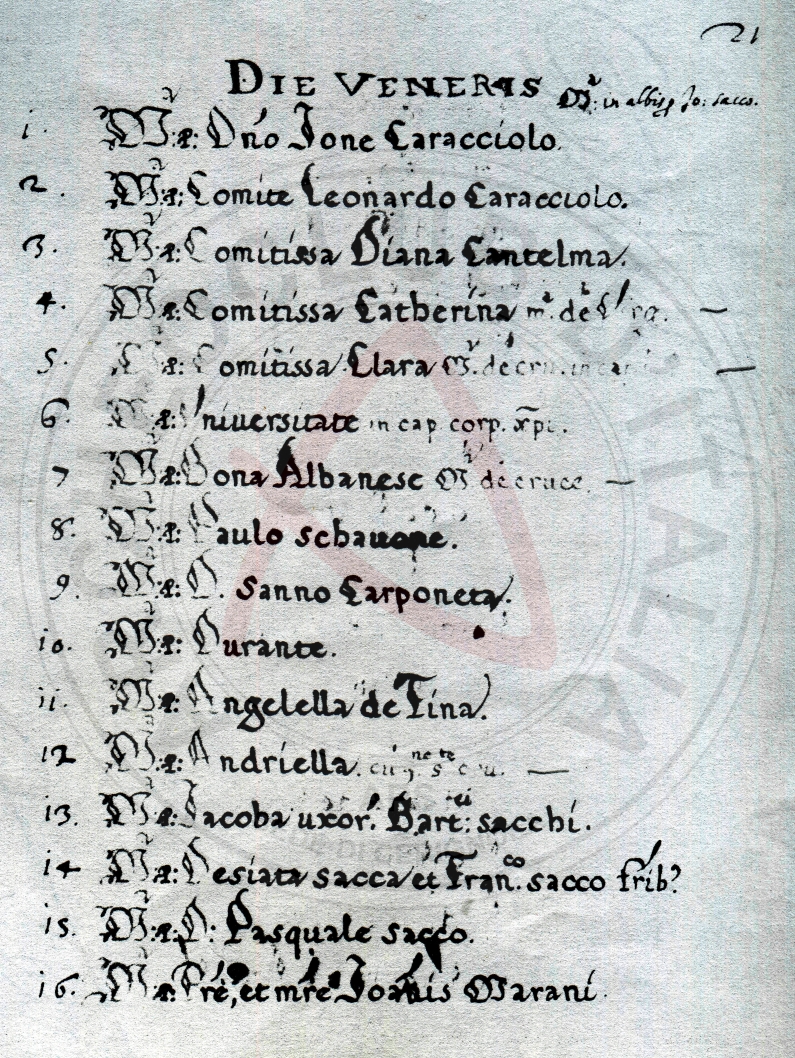 21
DIE VENERIS
in albis p Jo: sacco.
1. Mª: Dño Ione Caracciolo.
2. Mª: Comite Leonardo Caracciolo.
3. Mª: Comitissa Diana Cantelma.
4. Mª: Comitissa Catherina m. de —
5. Mª: Comitissa Clara M. de cru. —
6. Mª: Universitate in cap corp. xp̄i.
7 Mª: Bona Albanese M de cruce. —
8. Mª: Paulo schauone.
9. Mª: D. Sanno Carponeta.
10. Mª: Durante.
11. Mª: Angelella de Tina.
12 Mª: Andriella. —
13. Mª: Jacoba uxor. Bart:ei sacchi.
14 Mª: Desiata sacca et Fran.co sacco frib?
15. Mª: D: Pasquale sacco.
16. Mª: Pre, et mre Joanis Marani.